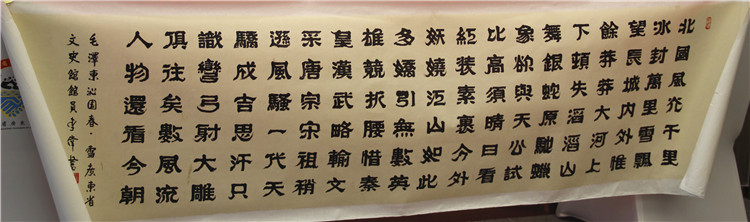 北國風光千里
冰封萬里雪飄
望長城內外惟
餘莽莽大河上
下頓失滔滔山
舞銀蛇原馳蠟
象欲與天公試
比高須晴日看
紅裝素裹分外
妖嬈江山如此
多嬌引無數英
雄競折腰惜秦
皇漢武略輸文
采唐宗宋祖稍
遜風騷一代天
驕成吉思汗只
識彎弓射大雕
俱往矣數風流
人物還看今朝
毛澤東沁園春·雪廣東省
文史館館員李